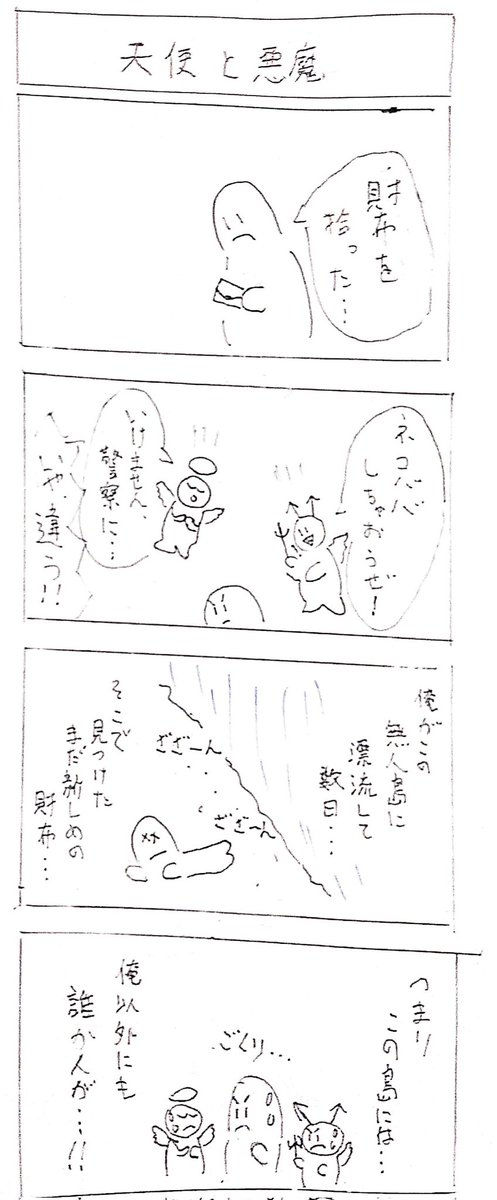 天使と悪魔
財布を
拾った…
ネコババ
しちゃおうぜ!
いけません、
警察に…
いや、違う!!
俺がこの
無人島に
漂流して
数日…
ざざーん
ざざ〜ん
そこで
見つけた
まだ新しめの
財布…
つまり
この島には…
ごくり…
俺以外にも
誰か人が…!!